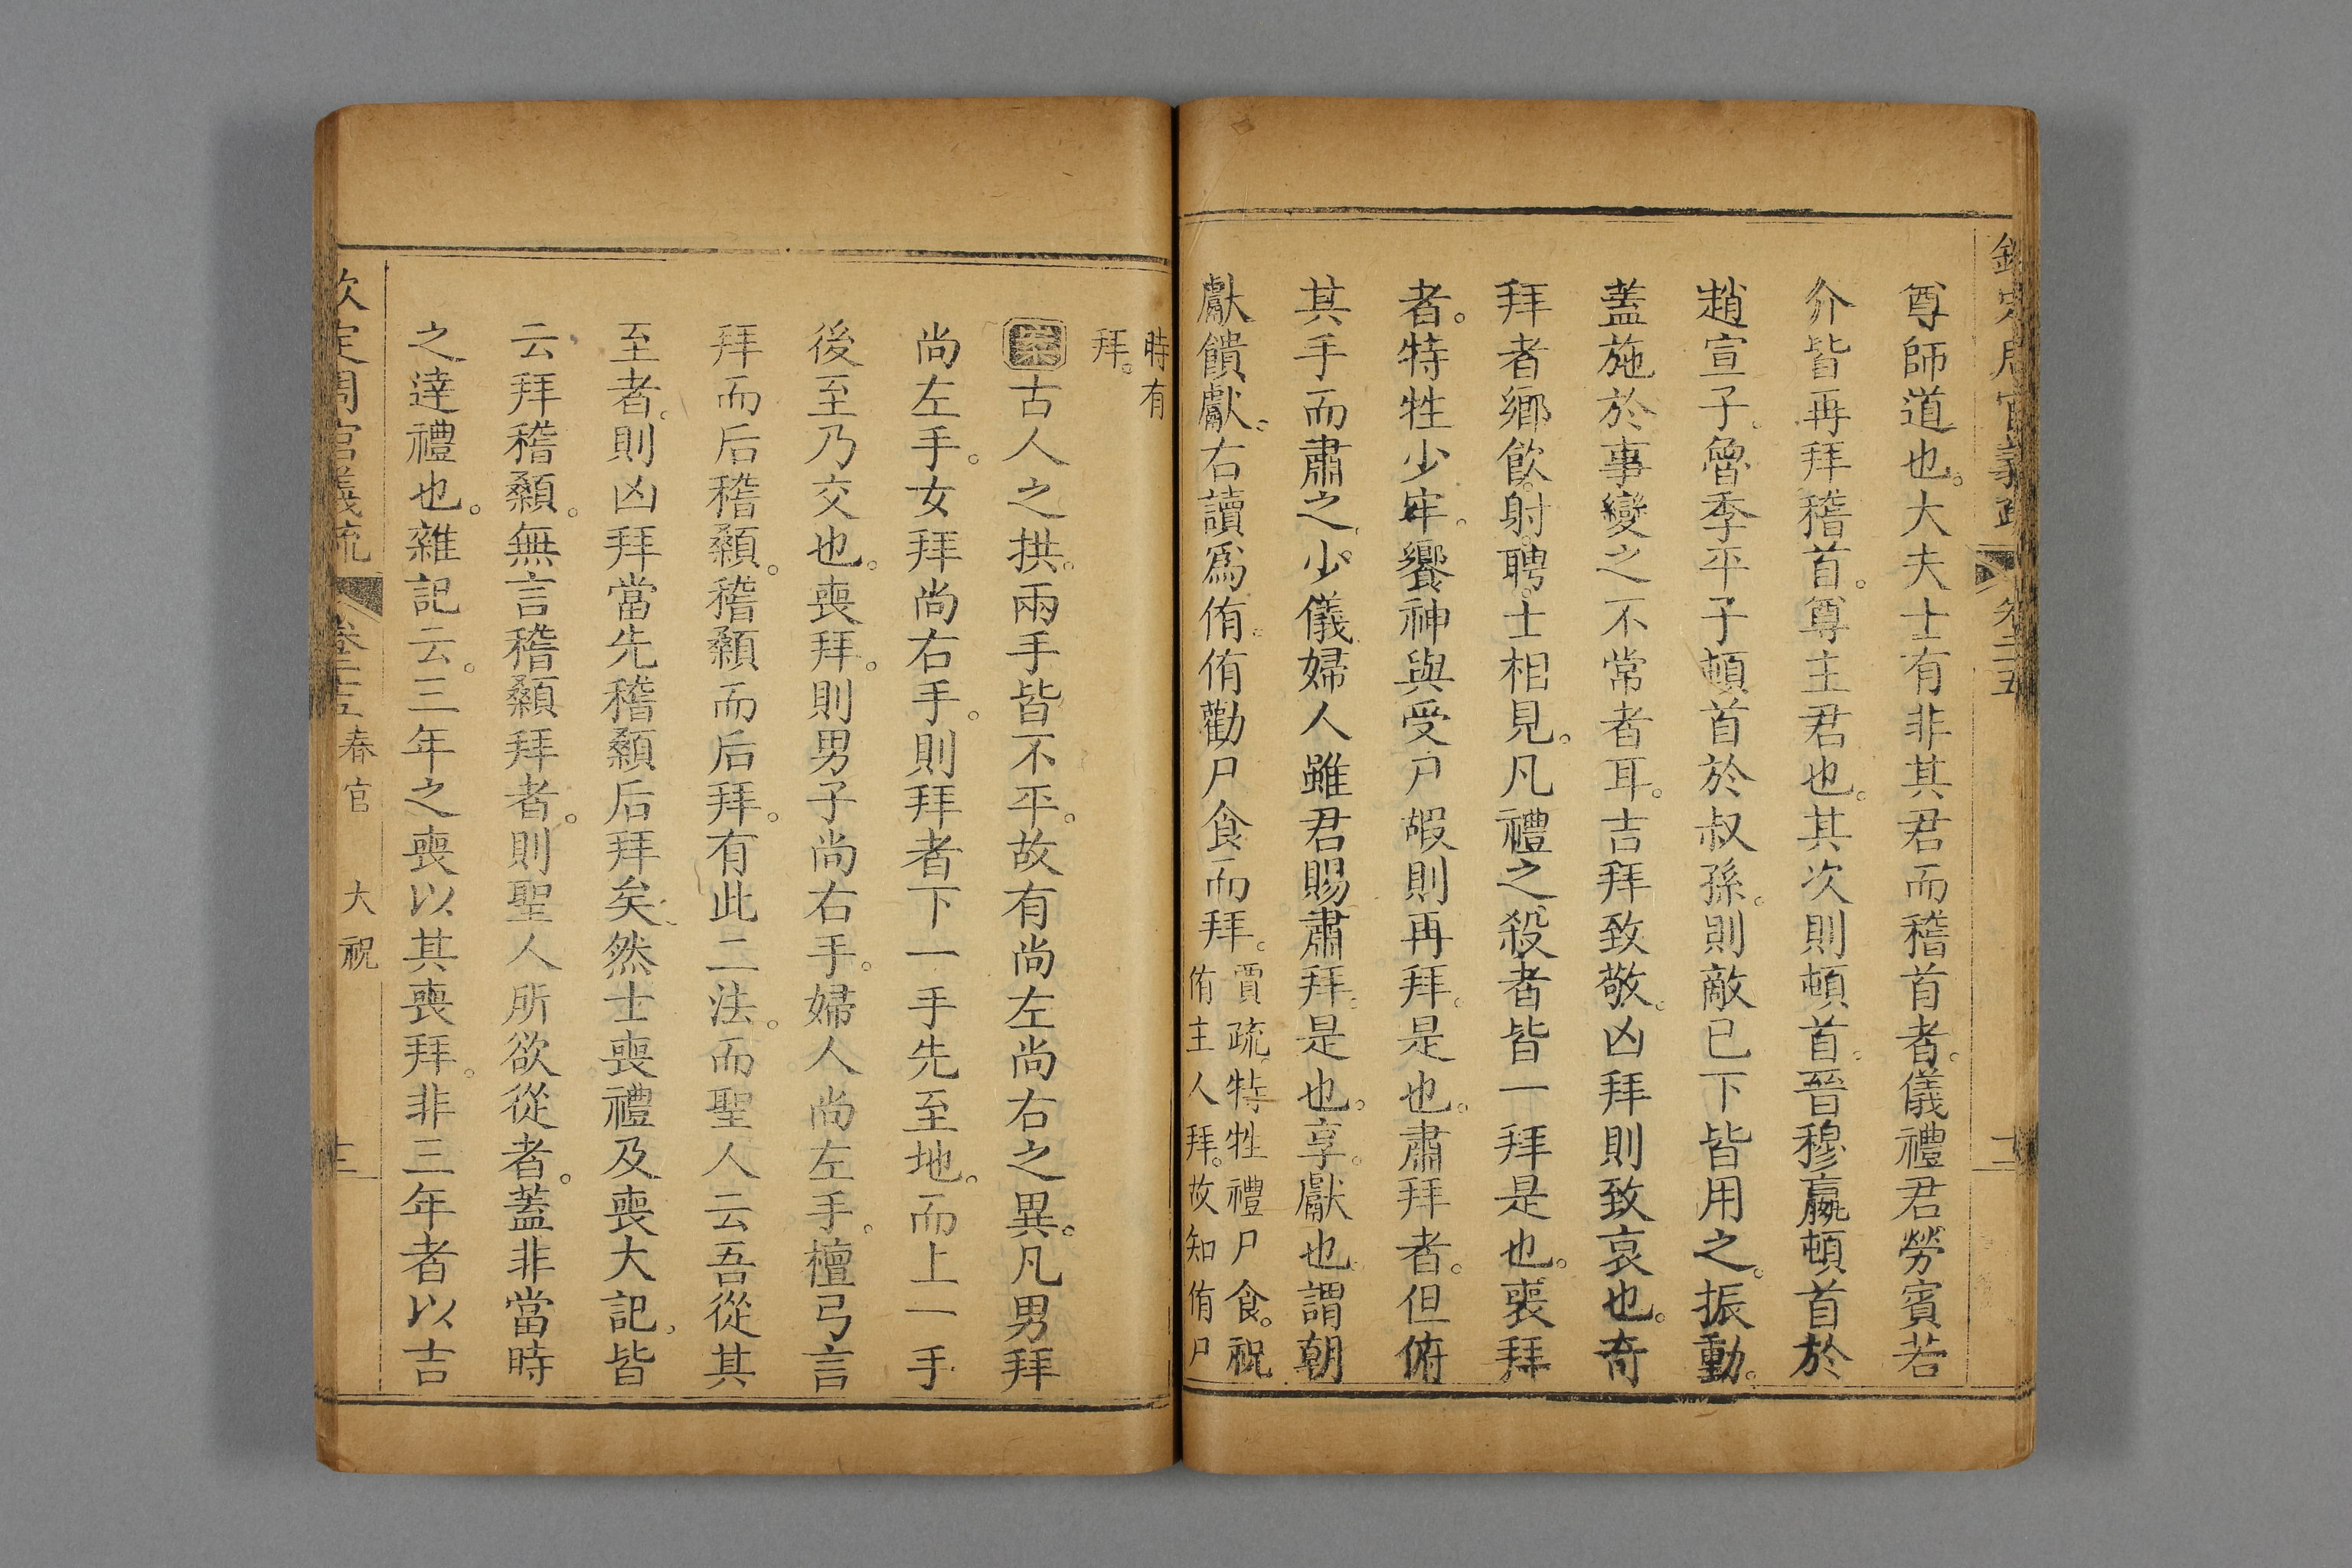 欽定周官義疏 卷二十五 十二
尊師道也。大夫士有非其君而稽首者。儀禮君勞賓若
介皆再拜稽首。尊主君也。其次則頓首。晉穆嬴頓首於
趙宣子。魯季平子頓首於叔孫。則敵已下皆用之。振動。
蓋施於事變之不常者耳。吉拜致敬。凶拜則致哀也。奇
拜者鄉飲。射。聘。士相見。凡禮之殺者皆一拜是也。褒拜
者。特牲少牢。饗神與受尸嘏則再拜。是也。肅拜者。但俯
其手而肅之。少儀婦人雖君賜肅拜。是也。享。獻也謂朝
獻饋獻。右讀爲侑。侑勸尸食而拜。賈疏。特牲禮尸食。祝
侑主人拜。故知侑尸
時有
拜。
案古人之拱。兩手皆不平。故有尚左尚右之異。凡男拜
尚左手。女拜尚右手。則拜者下一手先至地。而上一手
後至乃交也。喪拜。則男子尚右手。婦人尚左手。檀弓言
拜而后稽顙。稽顙而后拜。有此二法。而聖人云吾從其
至者。則凶拜當先稽顙后拜矣。然士喪禮及喪大記。皆
云拜稽顙。無言稽顙拜者。則聖人所欲從者。蓋非當時
之達禮也。雜記云。三年之喪以其喪拜。非三年者以吉
欽定周官義疏 卷二十五 春官 大祝 十二